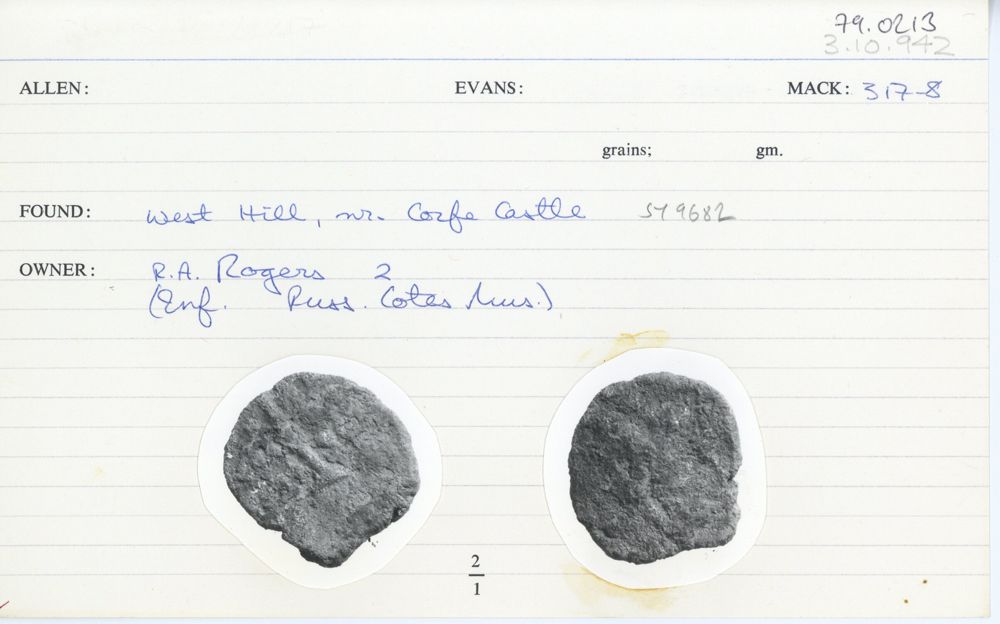 79.0213
3.10.942
ALLEN: EVANS: MACK: 317-8
grains; gm.
FOUND: West Hill, nr. Corfe Castle SY 9682
OWNER: R.A. Rogers 2
(Inf. Russ. Cotes Mus.)
2
1